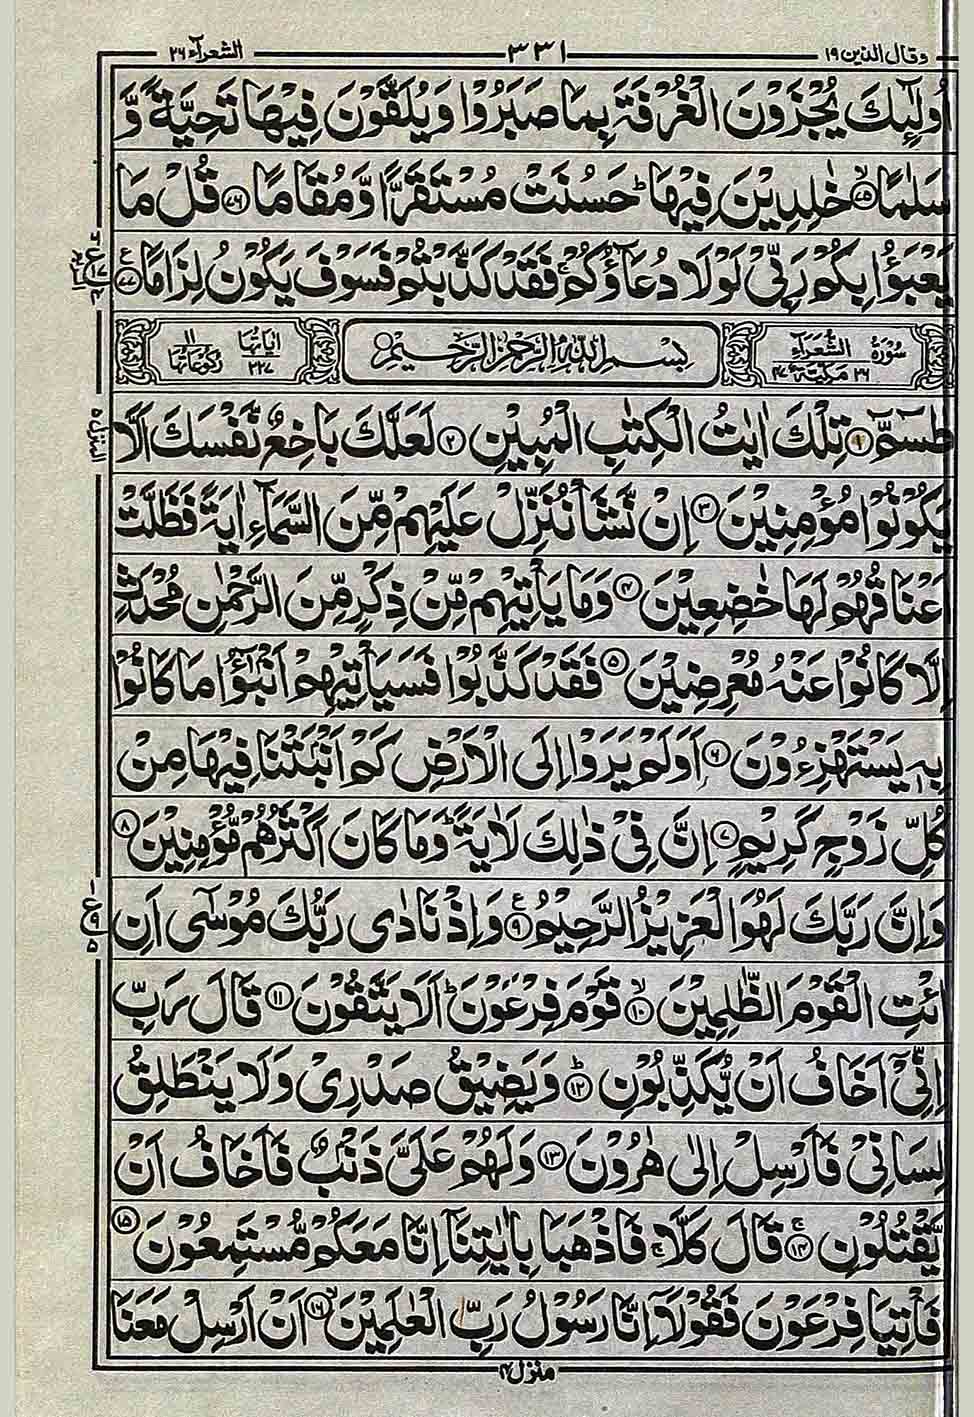 وقال الذين ١٩ ٣٣١ الشعرآء ٢٦
اُولٰٓئِكَ يُجْزَوْنَ الْغُرْفَةَ بِمَا صَبَرُوْا وَيُلَقَّوْنَ فِيْهَا تَحِيَّةً وَّ
سَلٰمًا ۙ﴿٧٥﴾ خٰلِدِيْنَ فِيْهَا ؕ حَسُنَتْ مُسْتَقَرًّا وَّمُقَامًا ﴿٧٦﴾ قُلْ مَا
يَعْبَؤُا بِكُمْ رَبِّيْ لَوْلَا دُعَآؤُكُمْ ۚ فَقَدْ كَذَّبْتُمْ فَسَوْفَ يَكُوْنُ لِزَامًا ﴿٧٧﴾ ع
سُوْرَةُ الشُّعَرَآءِ ٢٦ مَكِّيَّةٌ ٤٧ بِسْمِ اللّٰهِ الرَّحْمٰنِ الرَّحِيْمِ اٰيَاتُهَا ٢٢٧ رُكُوْعَاتُهَا ١١
طٰسٓمّٓ ﴿١﴾ تِلْكَ اٰيٰتُ الْكِتٰبِ الْمُبِيْنِ ﴿٢﴾ لَعَلَّكَ بَاخِعٌ نَّفْسَكَ اَلَّا
يَكُوْنُوْا مُؤْمِنِيْنَ ﴿٣﴾ اِنْ نَّشَاْ نُنَزِّلْ عَلَيْهِمْ مِّنَ السَّمَآءِ اٰيَةً فَظَلَّتْ
اَعْنَاقُهُمْ لَهَا خٰضِعِيْنَ ﴿٤﴾ وَمَا يَاْتِيْهِمْ مِّنْ ذِكْرٍ مِّنَ الرَّحْمٰنِ مُحْدَثٍ
اِلَّا كَانُوْا عَنْهُ مُعْرِضِيْنَ ﴿٥﴾ فَقَدْ كَذَّبُوْا فَسَيَاْتِيْهِمْ اَنْۢبٰٓؤُا مَا كَانُوْا
بِهٖ يَسْتَهْزِءُوْنَ ﴿٦﴾ اَوَلَمْ يَرَوْا اِلَى الْاَرْضِ كَمْ اَنْۢبَتْنَا فِيْهَا مِنْ
كُلِّ زَوْجٍ كَرِيْمٍ ﴿٧﴾ اِنَّ فِيْ ذٰلِكَ لَاٰيَةً ؕ وَمَا كَانَ اَكْثَرُهُمْ مُّؤْمِنِيْنَ ﴿٨﴾
وَاِنَّ رَبَّكَ لَهُوَ الْعَزِيْزُ الرَّحِيْمُ ﴿٩﴾ ع وَاِذْ نَادٰى رَبُّكَ مُوْسٰٓى اَنِ
ائْتِ الْقَوْمَ الظّٰلِمِيْنَ ۙ﴿١٠﴾ قَوْمَ فِرْعَوْنَ ؕ اَلَا يَتَّقُوْنَ ﴿١١﴾ قَالَ رَبِّ
اِنِّيْٓ اَخَافُ اَنْ يُّكَذِّبُوْنِ ؕ﴿١٢﴾ وَيَضِيْقُ صَدْرِيْ وَلَا يَنْطَلِقُ
لِسَانِيْ فَاَرْسِلْ اِلٰى هٰرُوْنَ ﴿١٣﴾ وَلَهُمْ عَلَيَّ ذَنْۢبٌ فَاَخَافُ اَنْ
يَّقْتُلُوْنِ ۚ﴿١٤﴾ قَالَ كَلَّا ۚ فَاذْهَبَا بِاٰيٰتِنَآ اِنَّا مَعَكُمْ مُّسْتَمِعُوْنَ ﴿١٥﴾
فَاْتِيَا فِرْعَوْنَ فَقُوْلَآ اِنَّا رَسُوْلُ رَبِّ الْعٰلَمِيْنَ ۙ﴿١٦﴾ اَنْ اَرْسِلْ مَعَنَا
منزل ٤
المنزل ٥